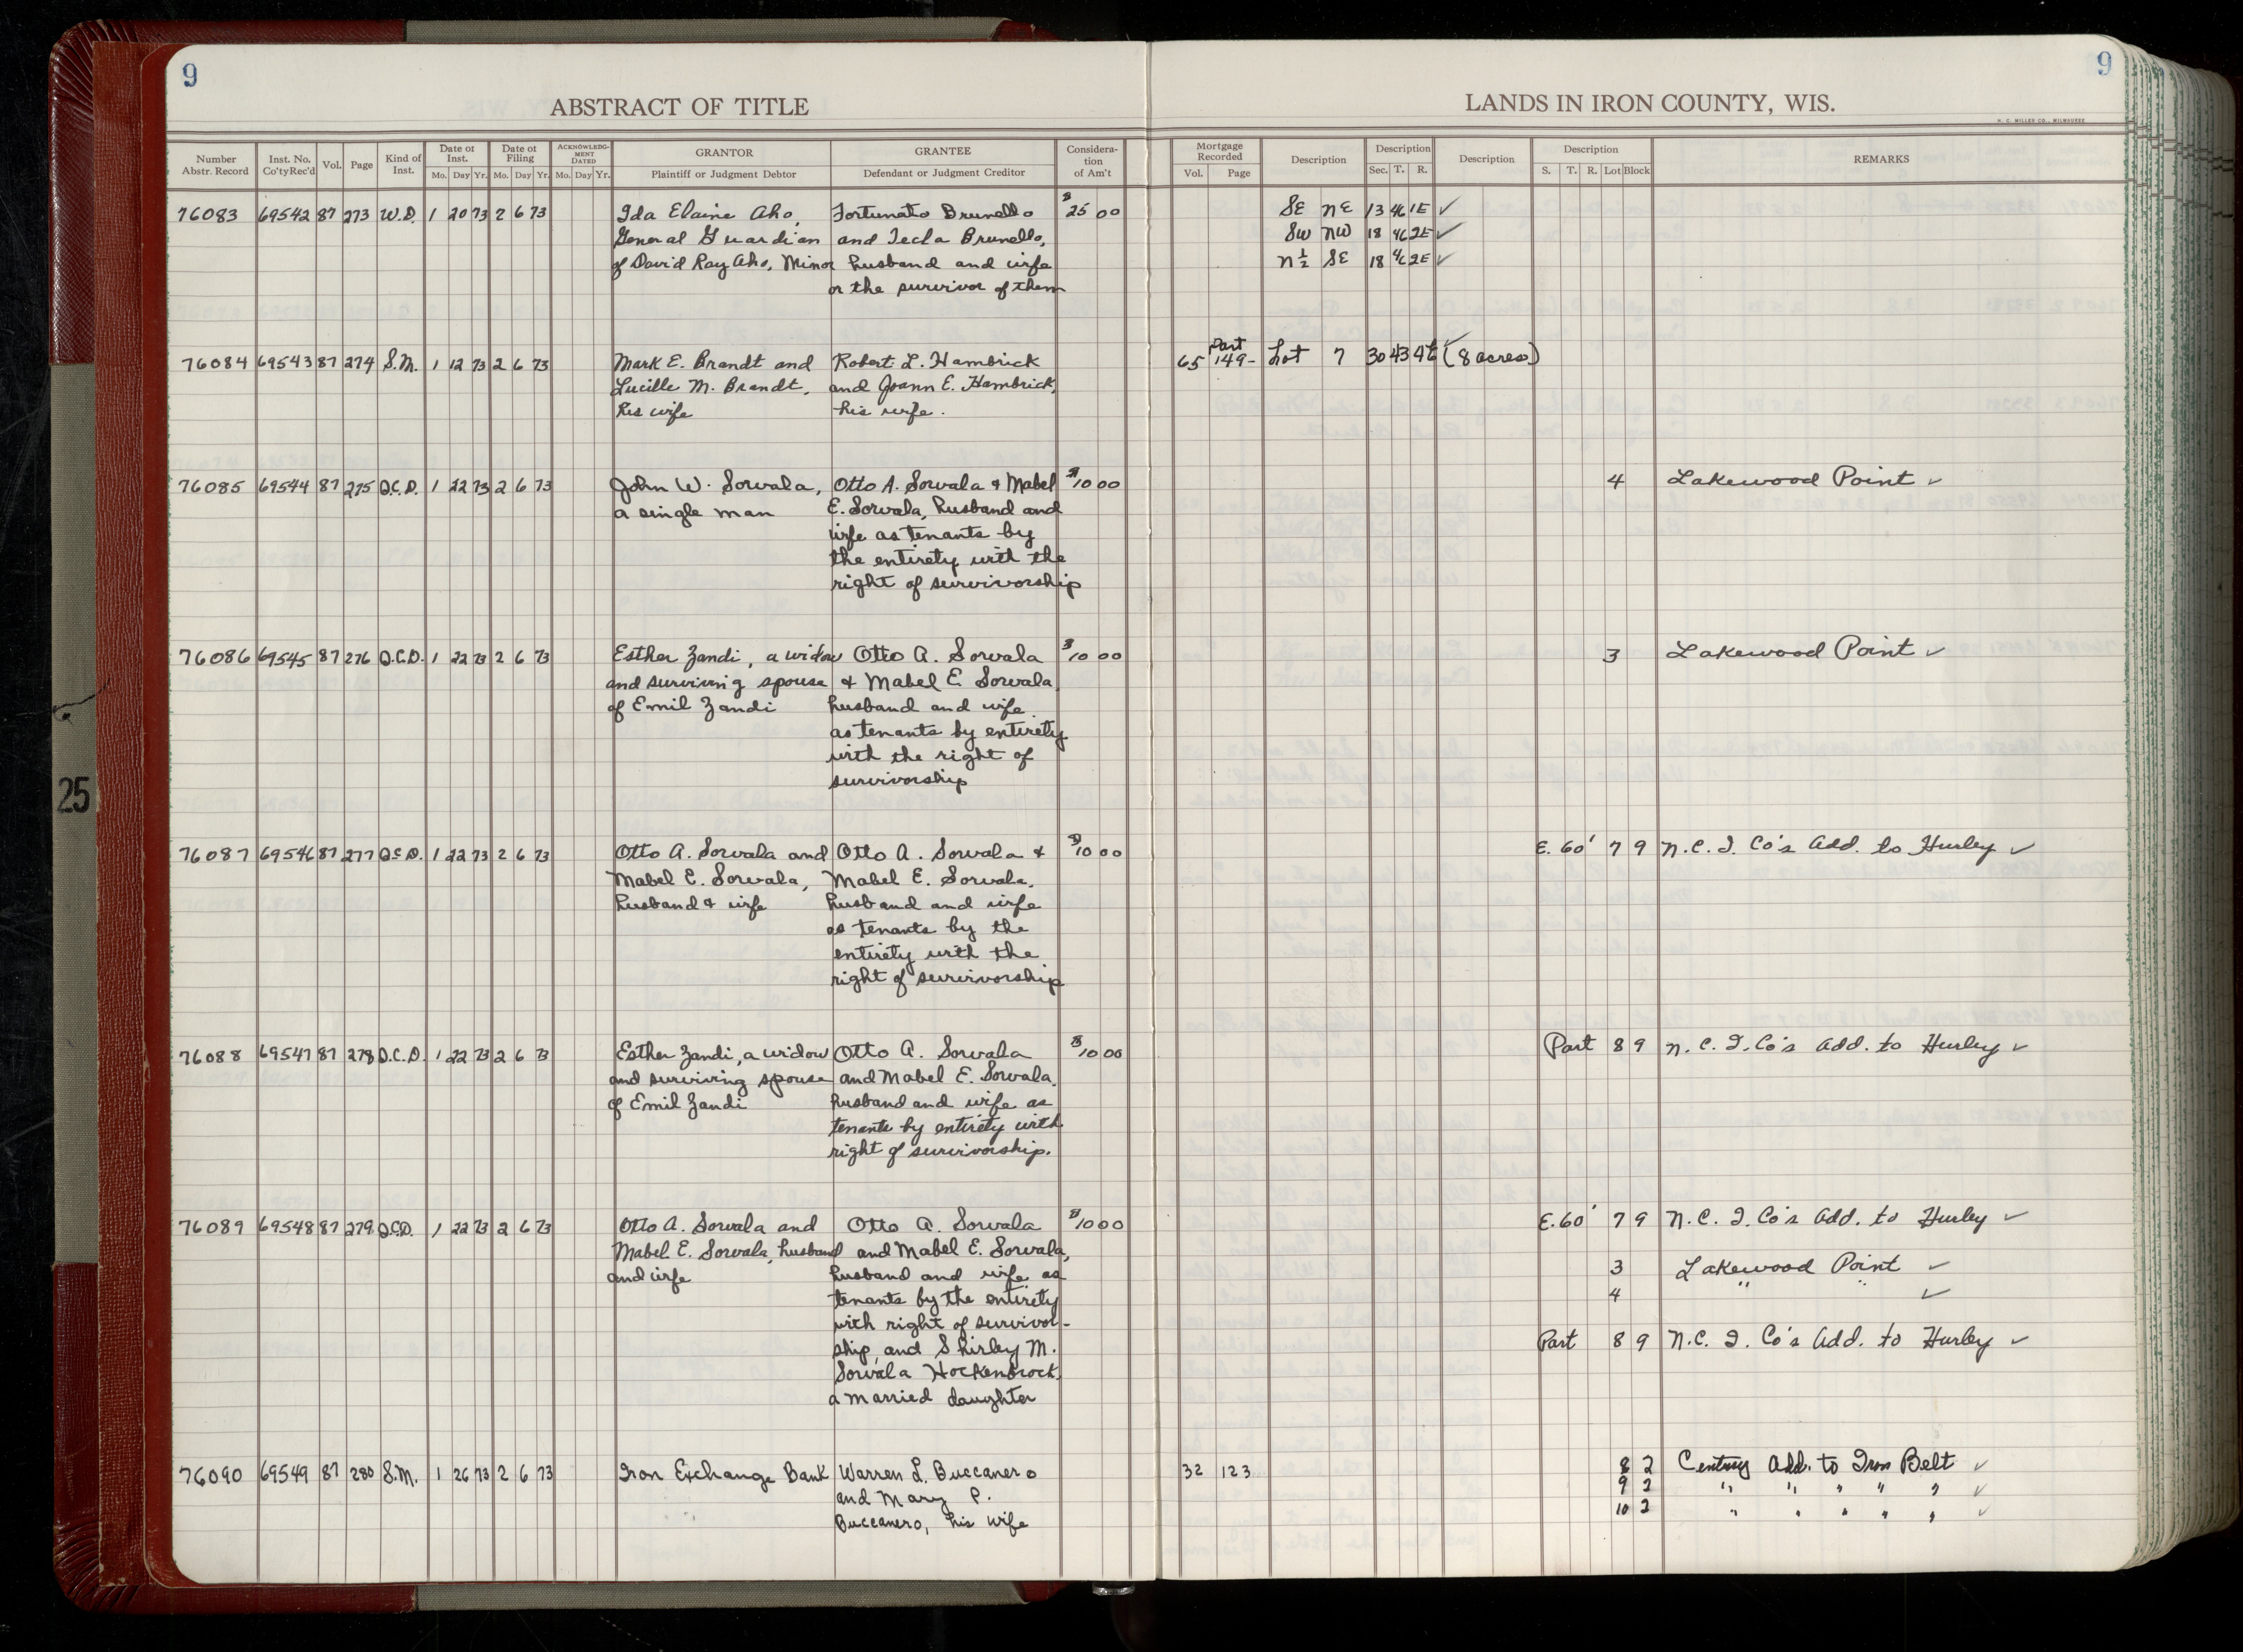 9
9
ABSTRACT OF TITLE
LANDS IN IRON COUNTY, WIS.
H. C. MILLER CO., MILWAUKEE
Number Abstr. Record | Inst. No. Co'ty Rec'd | Vol. | Page | Kind of Inst. | Date of Inst. Mo. Day Yr. | Date of Filing Mo. Day Yr. | ACKNOWLEDGMENT DATED Mo. Day Yr. | GRANTOR Plaintiff or Judgment Debtor | GRANTEE Defendant or Judgment Creditor | Consideration of Am't | Mortgage Recorded Vol. Page | Description | Description Sec. T. R. | Description | Description S. T. R. Lot Block | REMARKS
76083 69542 87 273 W.D. 1 20 73 2 6 73 Ida Elaine Aho, Fortunato Brunello $25 00 SE NE 13 46 1E ✓
General Guardian and Tecla Brunello, SW NW 18 46 2E ✓
of David Ray Aho, Minor husband and wife N½ SE 18 46 2E ✓
or the survivor of them
76084 69543 87 274 S.M. 1 12 73 2 6 73 Mark E. Brandt and Robert L. Hambrick 65 149- Part Lot 7 30 43 4E (8 acres) ✓
Lucille M. Brandt, and Joann E. Hambrick,
his wife his wife.
76085 69544 87 275 Q.C.D. 1 22 73 2 6 73 John W. Sorvala, Otto A. Sorvala & Mabel $10 00 4 Lakewood Point ✓
a single man E. Sorvala, husband and
wife as tenants by
the entirety with the
right of survivorship
76086 69545 87 276 Q.C.D. 1 22 73 2 6 73 Esther Zandi, a widow Otto A. Sorvala $10 00 3 Lakewood Point ✓
and surviving spouse & Mabel E. Sorvala,
of Emil Zandi husband and wife
as tenants by entirety
with the right of
survivorship
76087 69546 87 277 Q.C.D. 1 22 73 2 6 73 Otto A. Sorvala and Otto A. Sorvala & $10 00 E. 60' 7 9 N.C.I. Co's Add. to Hurley ✓
Mabel E. Sorvala, Mabel E. Sorvala,
husband & wife husband and wife
as tenants by the
entirety with the
right of survivorship
76088 69547 87 278 Q.C.D. 1 22 73 2 6 73 Esther Zandi, a widow Otto A. Sorvala $10 00 Part 8 9 N.C.I. Co's Add. to Hurley ✓
and surviving spouse and Mabel E. Sorvala,
of Emil Zandi husband and wife as
tenants by entirety with
right of survivorship.
76089 69548 87 279 Q.C.D. 1 22 73 2 6 73 Otto A. Sorvala and Otto A. Sorvala $10 00 E. 60' 7 9 N.C.I. Co's Add. to Hurley ✓
Mabel E. Sorvala, husband and Mabel E. Sorvala,
and wife husband and wife as 3 Lakewood Point ✓
tenants by the entirety 4 " " ✓
with right of survivor-
ship, and Shirley M. Part 8 9 N.C.I. Co's Add. to Hurley ✓
Sorvala Hockenbrock,
a married daughter
76090 69549 87 280 S.M. 1 26 73 2 6 73 Iron Exchange Bank Warren L. Buccanero 32 123 8 2 Century Add. to Iron Belt ✓
and Mary P. 9 2 " " " " " ✓
Buccanero, his wife 10 2 " " " " " ✓
25